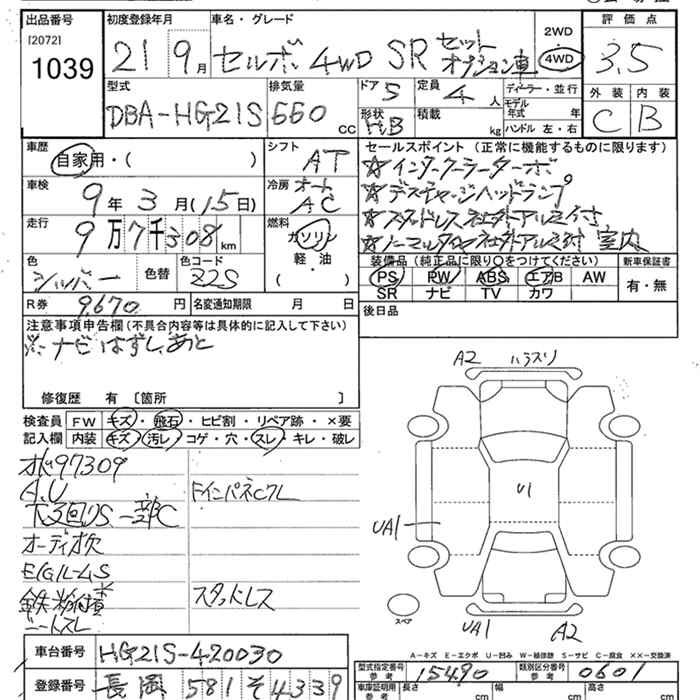 出品番号 初度登録年月 車名・グレード 2WD 評価点
[2072] 1039 21 9月 セルボ 4WD SR セットオプション車 4WD 3.5
型式 排気量 ドア 5 定員 4人 ディーラー・並行 外装 内装
DBA-HG21S 660 CC 形状 H.B 積載 kg モデル年式 年式 ハンドル 左・右 C B
車歴 シフト セールスポイント (正常に機能するものに限ります)
自家用・( ) AT ☆インタークーラーターボ
車検 9年 3月(15日) 冷房 オート AC ☆ディスチャージヘッドランプ
走行 9万7千308km 燃料 ガソリン ☆スタッドレス社外アルミ付
軽・油 ☆ノーマルタイヤ社外アルミ付 室内
色 色替 色コード ( ) 装備品 (純正品に限り○をつけてください) 新車保証書
シルバー Z2S PS PW ABS エアB AW 有・無
SR ナビ TV カワ
R券 9,670円 名変通知期限 月 日 後日品
注意事項申告欄(不具合内容等は具体的に記入して下さい)
※ナビはずしあと
修復歴 有 〔箇所 〕
検査員 FW キズ・飛石・ヒビ割・リペア跡・×要
記入欄 内装 キズ・汚レ・コゲ・穴・スレ・キレ・破レ
A2 ハラスリ
U1
UA1
スペア
UA1 A2
97309
A.U Fインパネ
下回りS一部C
オーディオ欠
E/Gルーム S
鉄粉付着 スタットレス
シートスレ
A-キズ E-エクボ U-凹み W-補修跡 S-サビ C-腐食 ××-交換済
車台番号 HG21S-420030 型式指定番号 参考 15490 類別区分番号 参考 0601
登録番号 長岡 581 そ 4339 車庫証明用 参考 長さ cm 幅 cm 高さ cm